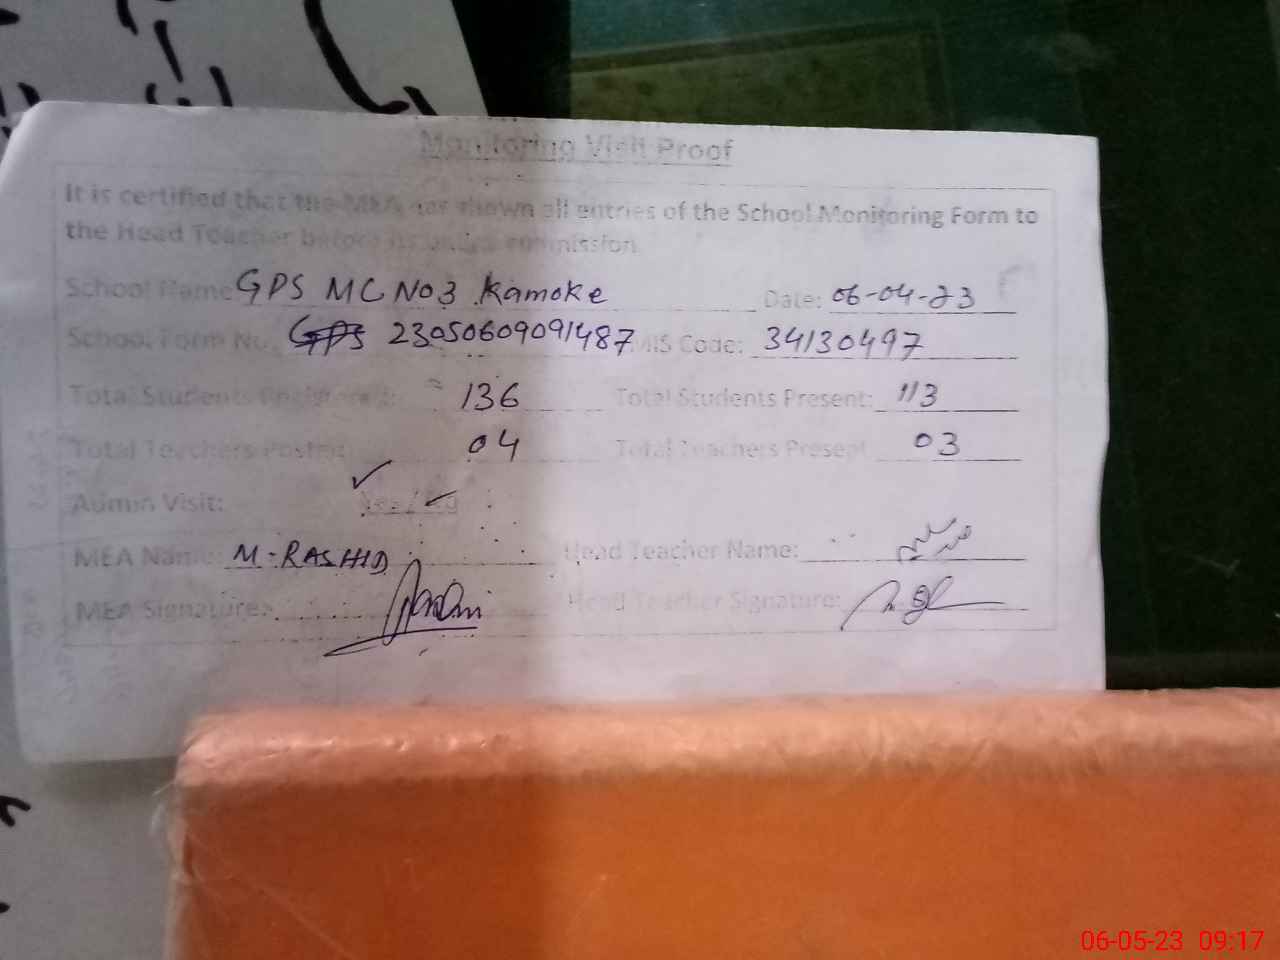 Monitoring Visit Proof
It is certified that the MEA has shown all entries of the School Monitoring Form to
the Head Teacher before its submission.
School Name GPS MC No3 Kamoke Date: 06-04-23
School Form No. GPS 23050609091487 EMIS Code: 34130497
Total Students Registered: 136 Total Students Present: 113
Total Teachers Posted: 04 Total Teachers Present 03
Admin Visit: Yes / No
MEA Name: M-RASHID Head Teacher Name:
MEA Signature: Head Teacher Signature:
06-05-23 09:17